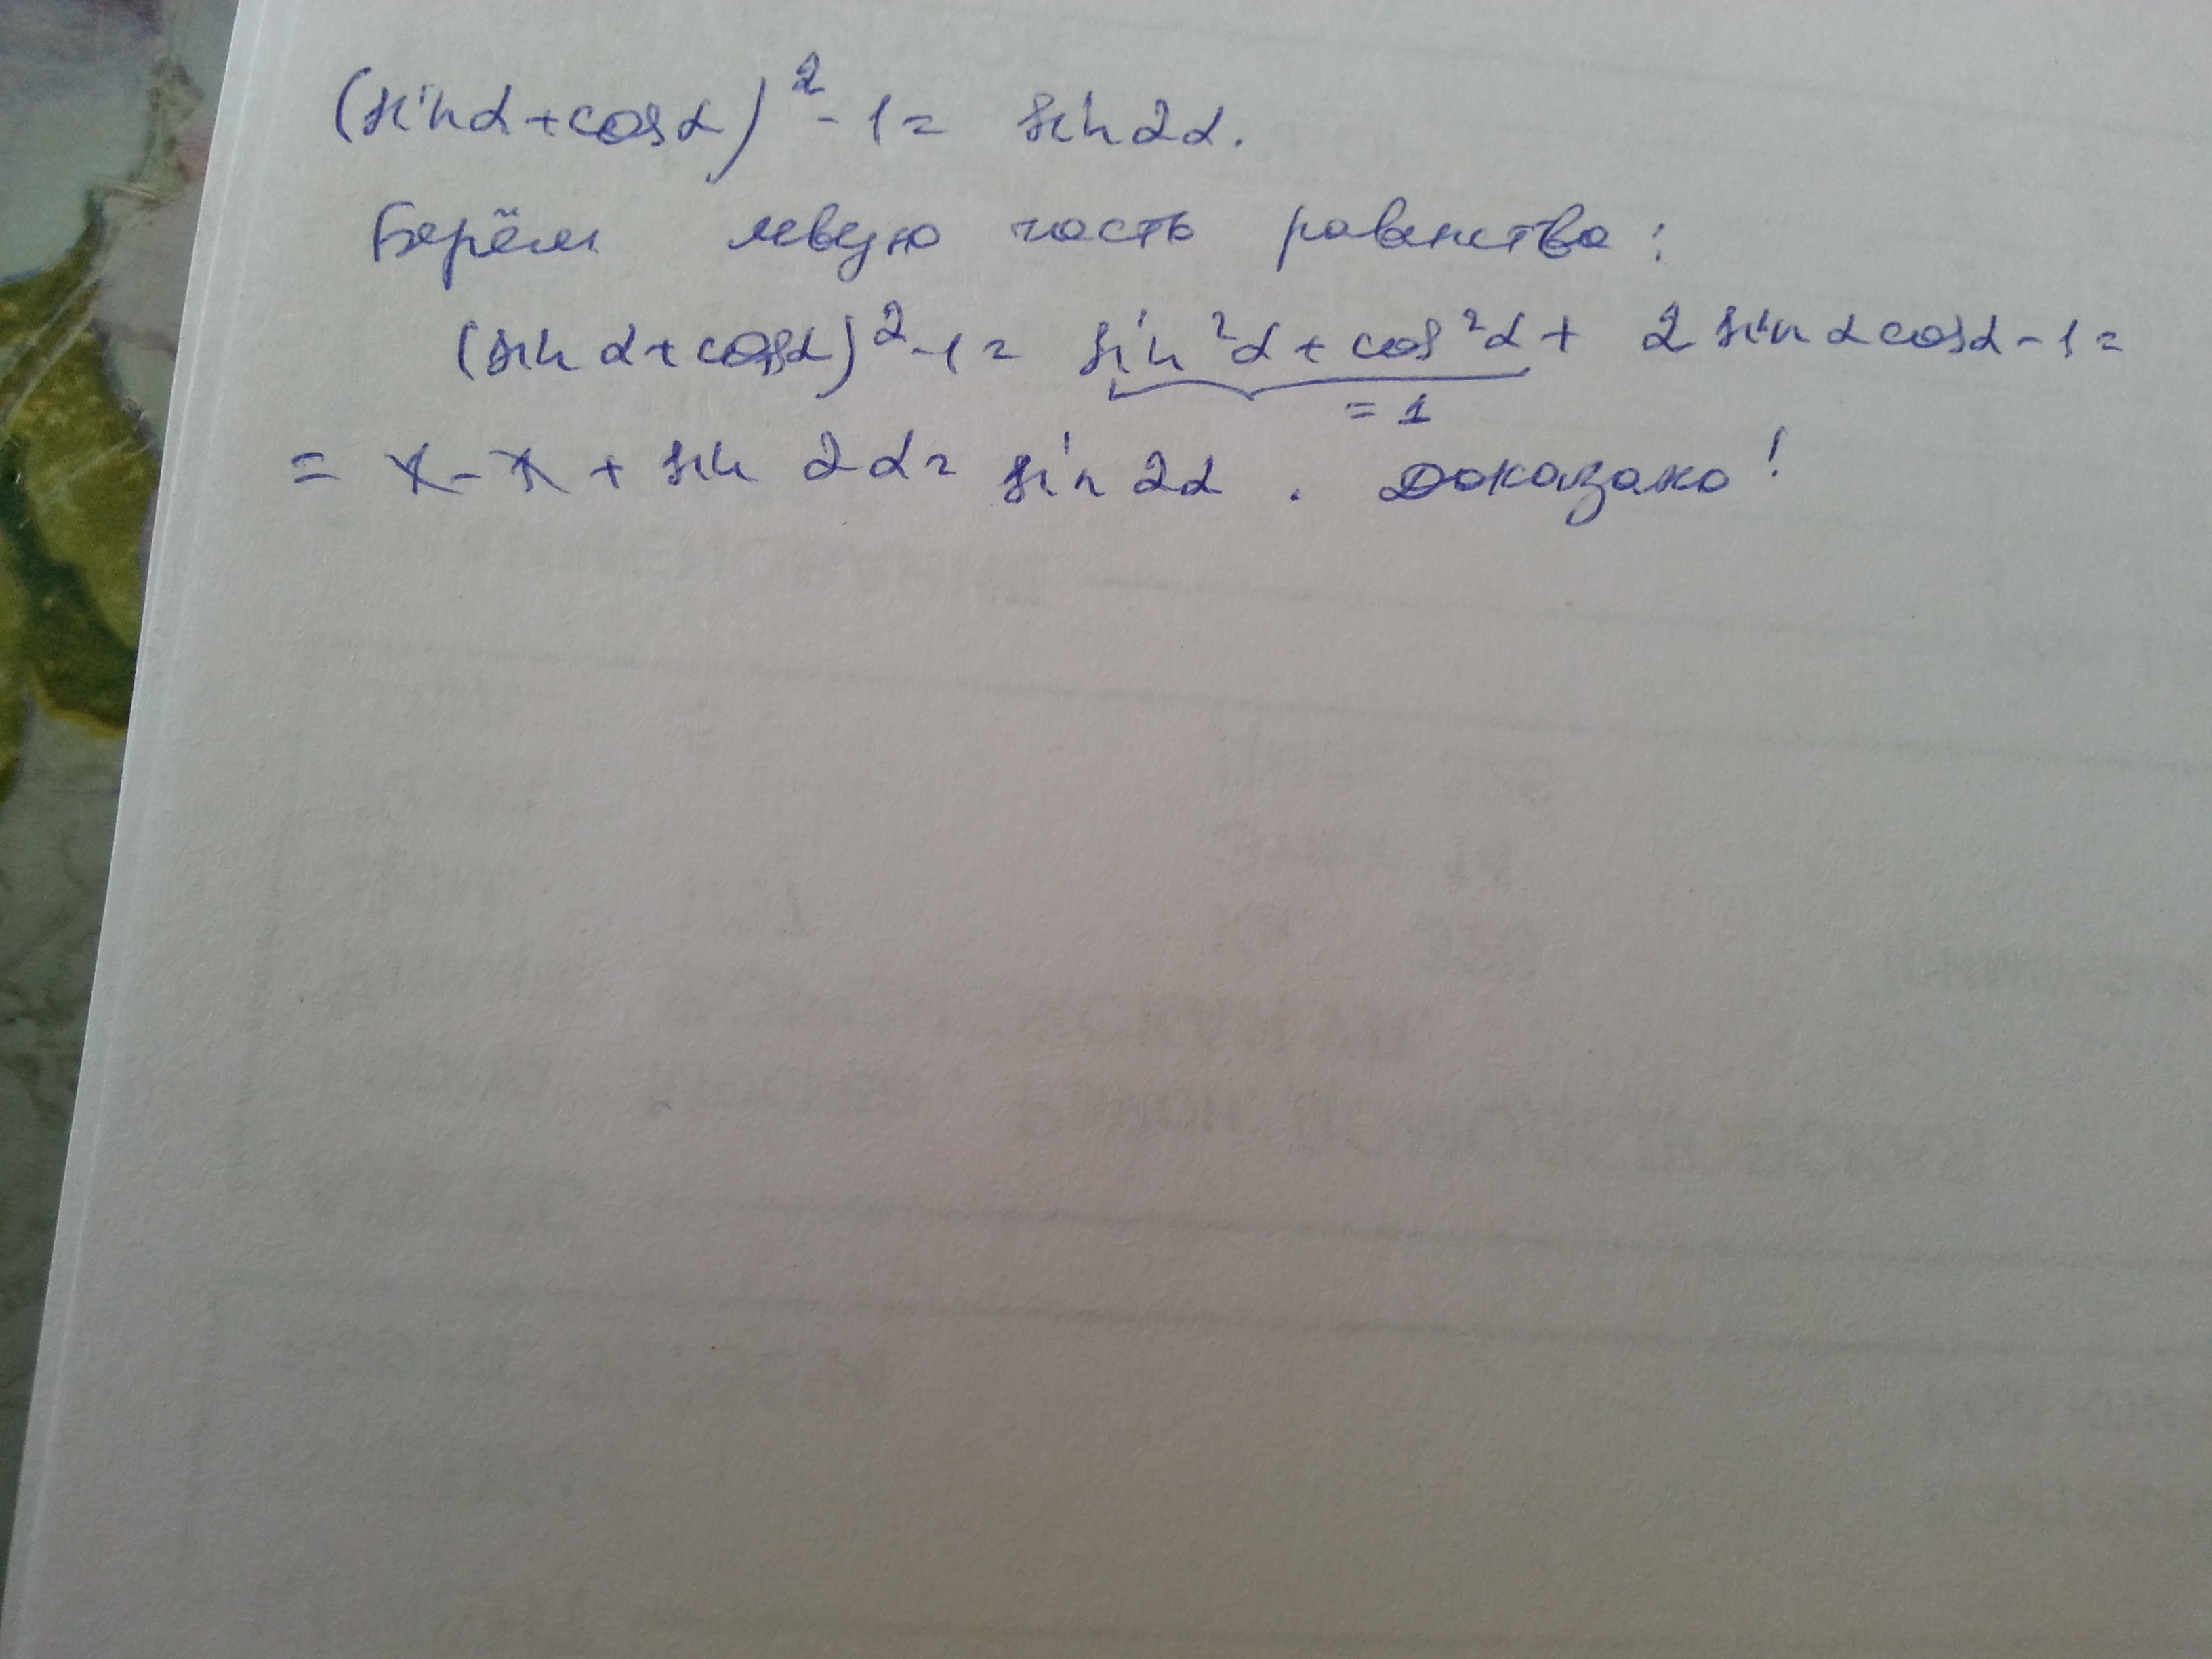 (sinα+cosα)²-1= sin2α.
Берём левую часть равенства:
(sin α+cosα)²-1= sin²α+cos²α+ 2 sin α cosα-1=
=1
= 1-1+ sin 2α= sin2α. Доказано!